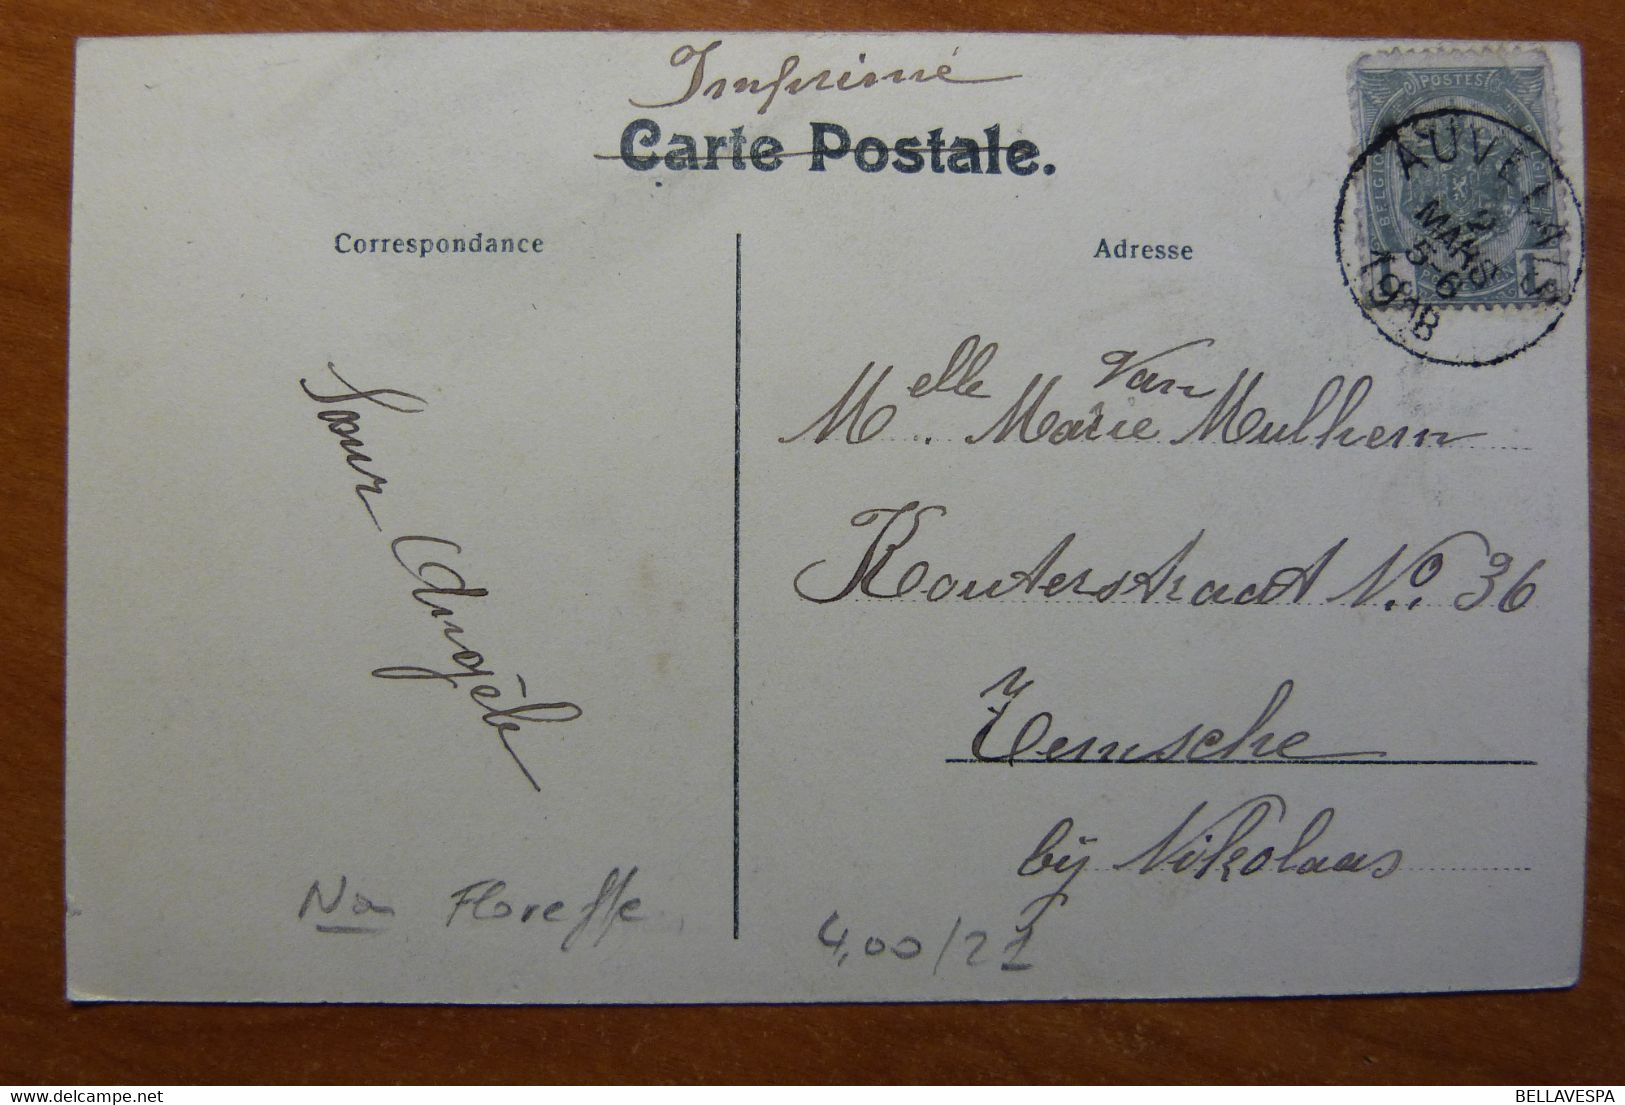 Imprimé
Carte Postale.
POSTES
BELGIQUE
AUVELAIS
2
MARS
5-6
1908
1 1
Correspondance
Adresse
Soeur Angèle
Melle. Marie Van Mulhern
Kouterstraat No. 36
Temsche
bij Nikolaas
Na Floreffe
4,00/21
BELLAVESPA